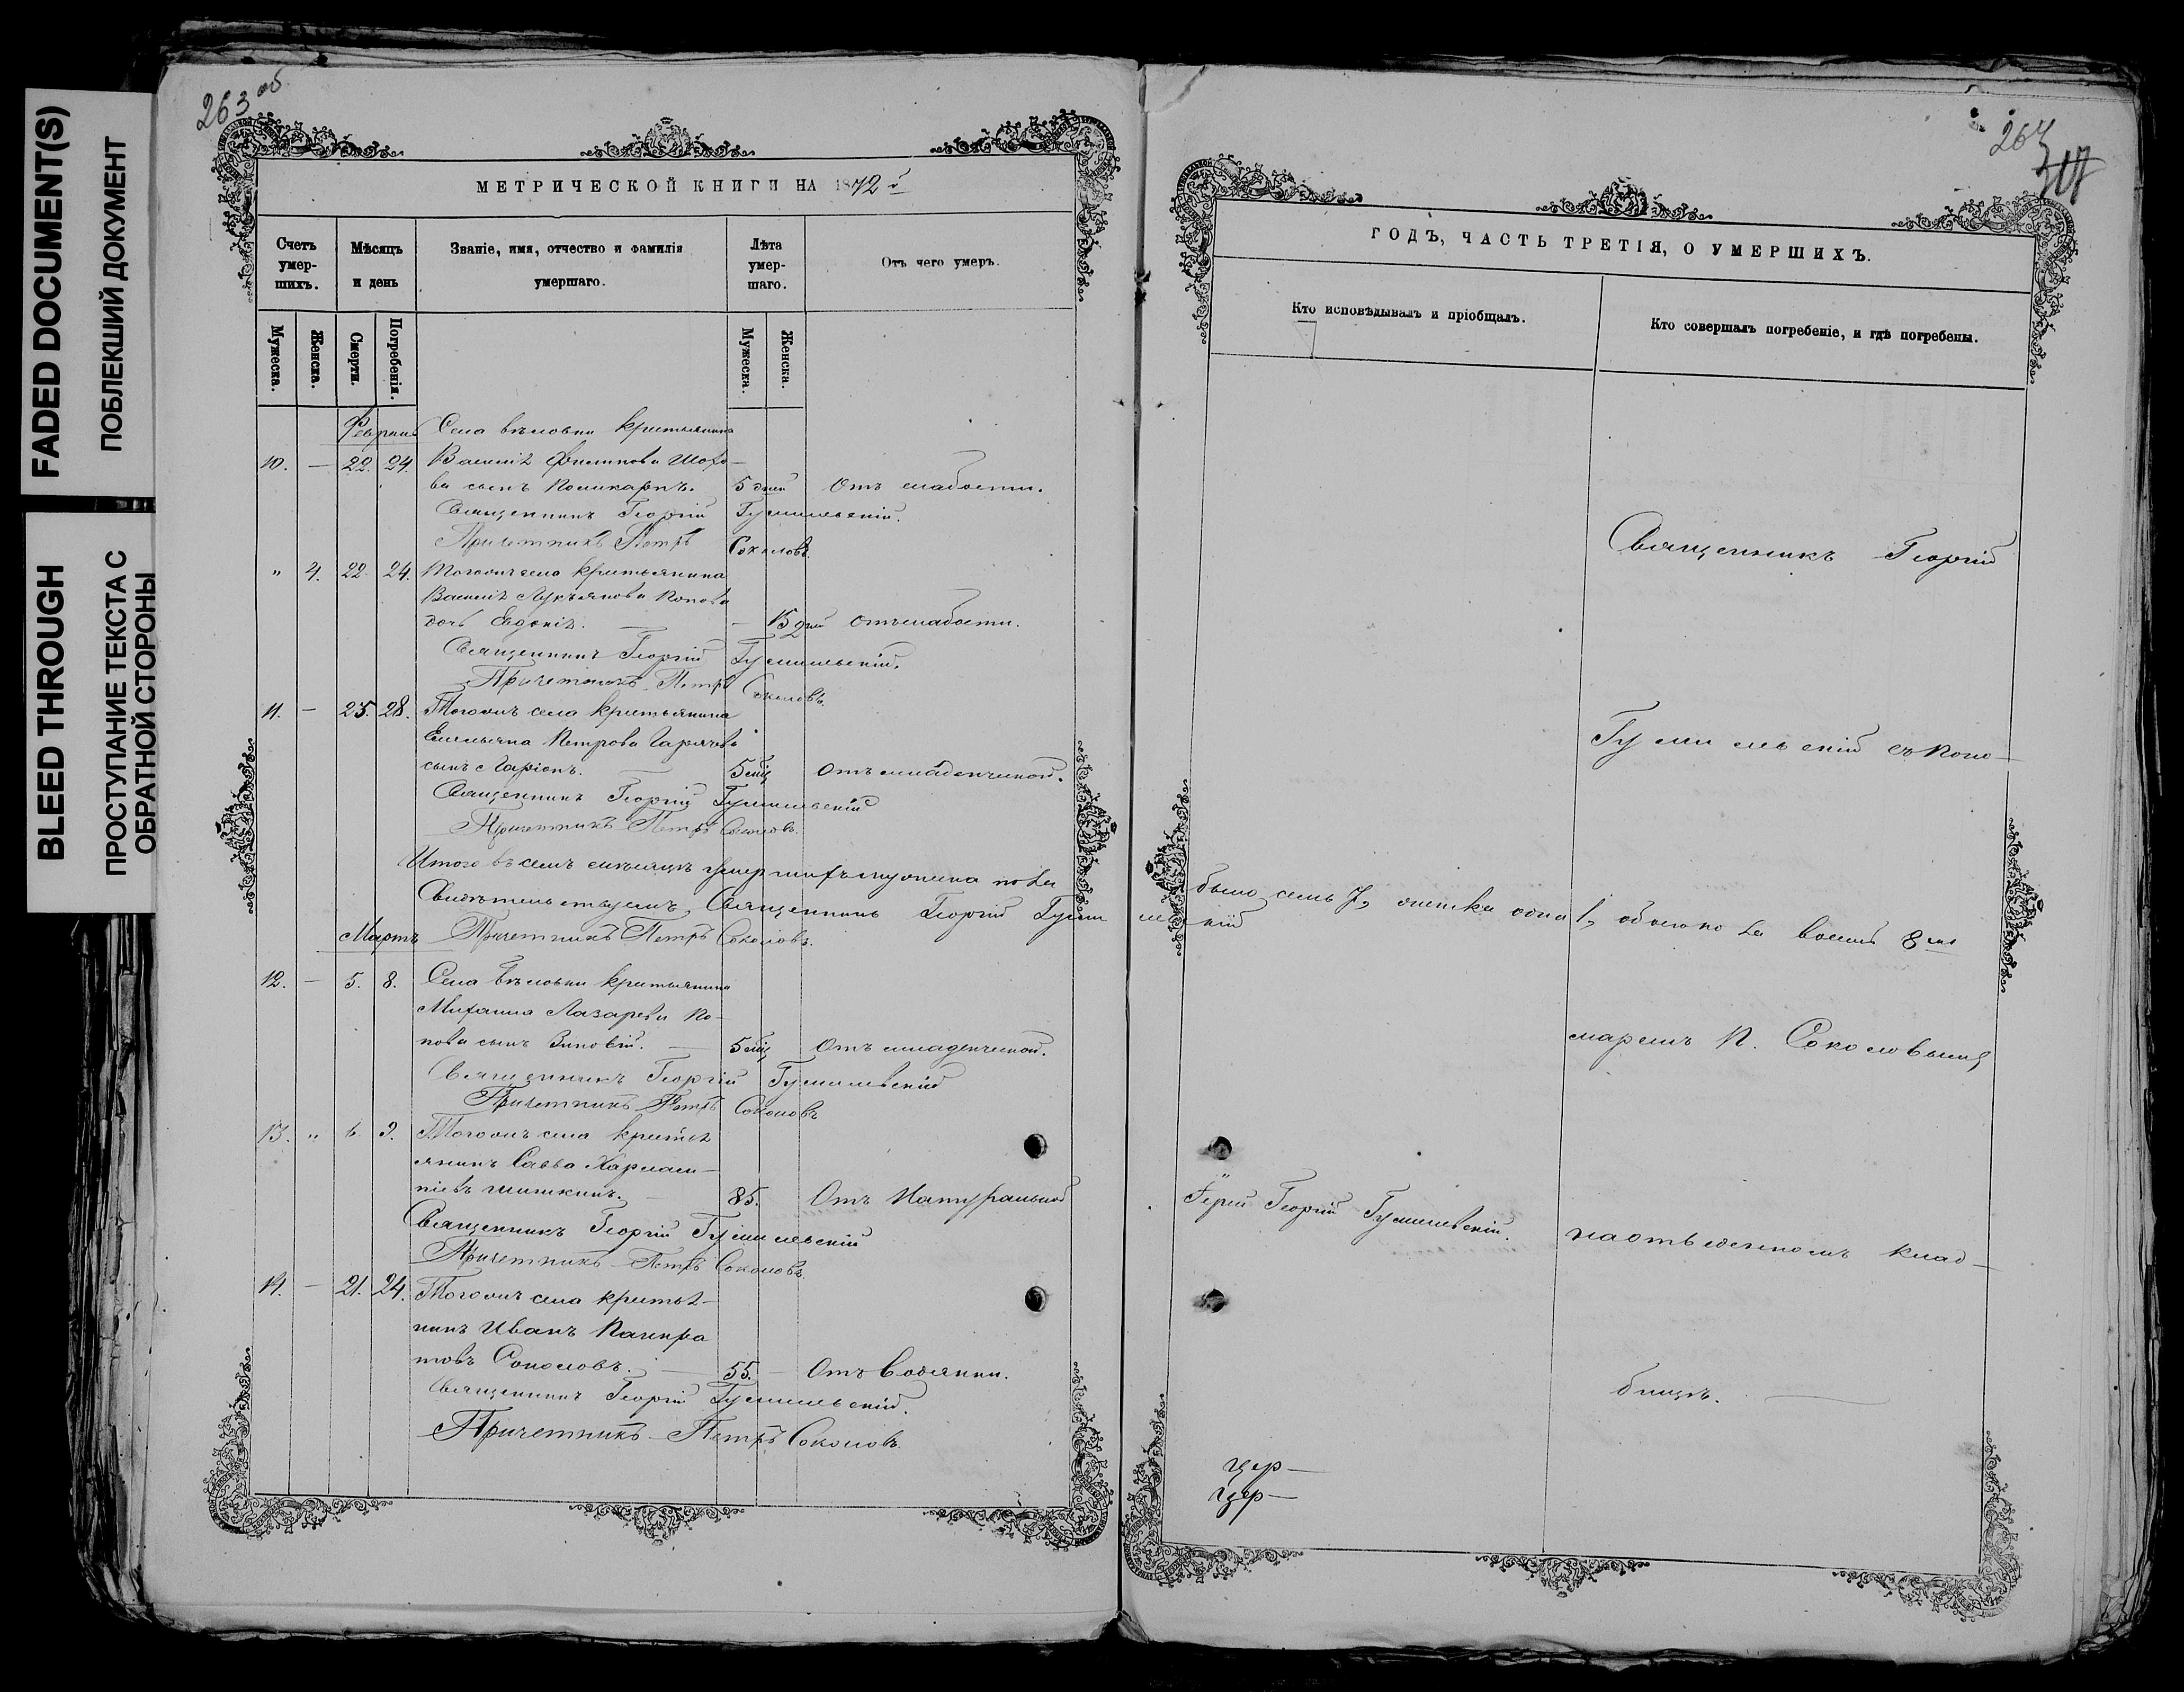 FADED DOCUMENT(S)
ПОБЛЕКШИЙ ДОКУМЕНТ
BLEED THROUGH
ПРОСТУПАНИЕ ТЕКСТА С
ОБРАТНОЙ СТОРОНЫ
263 об
МЕТРИЧЕСКОЙ КНИГИ НА 1872й
Счетъ умер-шихъ.
Мѣсяцъ и день
Званіе, имя, отчество и фамилія умершаго.
Лѣта умер-шаго.
Отъ чего умеръ.
Мужеска.
Женска.
Смерти.
Погребенія.
Мужеска.
Женска.
Февраль Села крестьянина
10. — 22. 24. Василія Филипова
ва сынъ Поликарпъ. 5 дней Отъ слабости.
Священникъ Георгій Гумилевскій.
Причетникъ Петръ Соколовъ.
" 4. 22. 24. Тогожъ села крестьянина
Василія Лукьянова Попова
дочь Евдокія. — 15 дней отъ слабости.
Священникъ Георгій Гумилевскій.
Причетникъ Петръ Соколовъ.
11. — 25. 28. Тогожъ села крестьянина
Емельяна Петрова
сынъ Ларіонъ. 5 мѣс Отъ младенческой.
Священникъ Георгій Гумилевскій
Причетникъ Петръ Соколовъ.
Итого въ семъ мѣсяцѣ умершихъ мужеска пола
Свидѣтельствуемъ, Священникъ Георгій Гуми
Мартъ Причетникъ Петръ Соколовъ.
12. — 5. 8. Села крестьянина
Михаила Лазарева По-
пова сынъ Зиновій. — 5 мѣс Отъ младенческой.
Священникъ Георгій Гумилевскій
Причетникъ Петръ Соколовъ
13. " 6. 9. Тогожъ села кресть
янинъ Савва Харлам-
піевъ Шишкинъ. — 85. Отъ Натуральной
Священникъ Георгій Гумилевскій
Причетникъ Петръ Соколовъ
14. — 21. 24. Тогожъ села крестья-
нинъ Иванъ Панкра
товъ Соколовъ. — 55. — Отъ Водянки.
Священникъ Георгій Гумилевскій.
Причетникъ Петръ Соколовъ.
264
ГОДЪ, ЧАСТЬ ТРЕТІЯ, О УМЕРШИХЪ.
Кто исповѣдывалъ и пріобщалъ.
Кто совершалъ погребеніе, и гдѣ погребены.
Священникъ Георгій
Гумилевскій съ Поно-
было семь 7, женска одна 1, обоего пола восемь 8
скій
маремъ П. Соколовымъ
Іерей Георгій Гумилевскій. на отведенномъ клад-
бищѣ. —